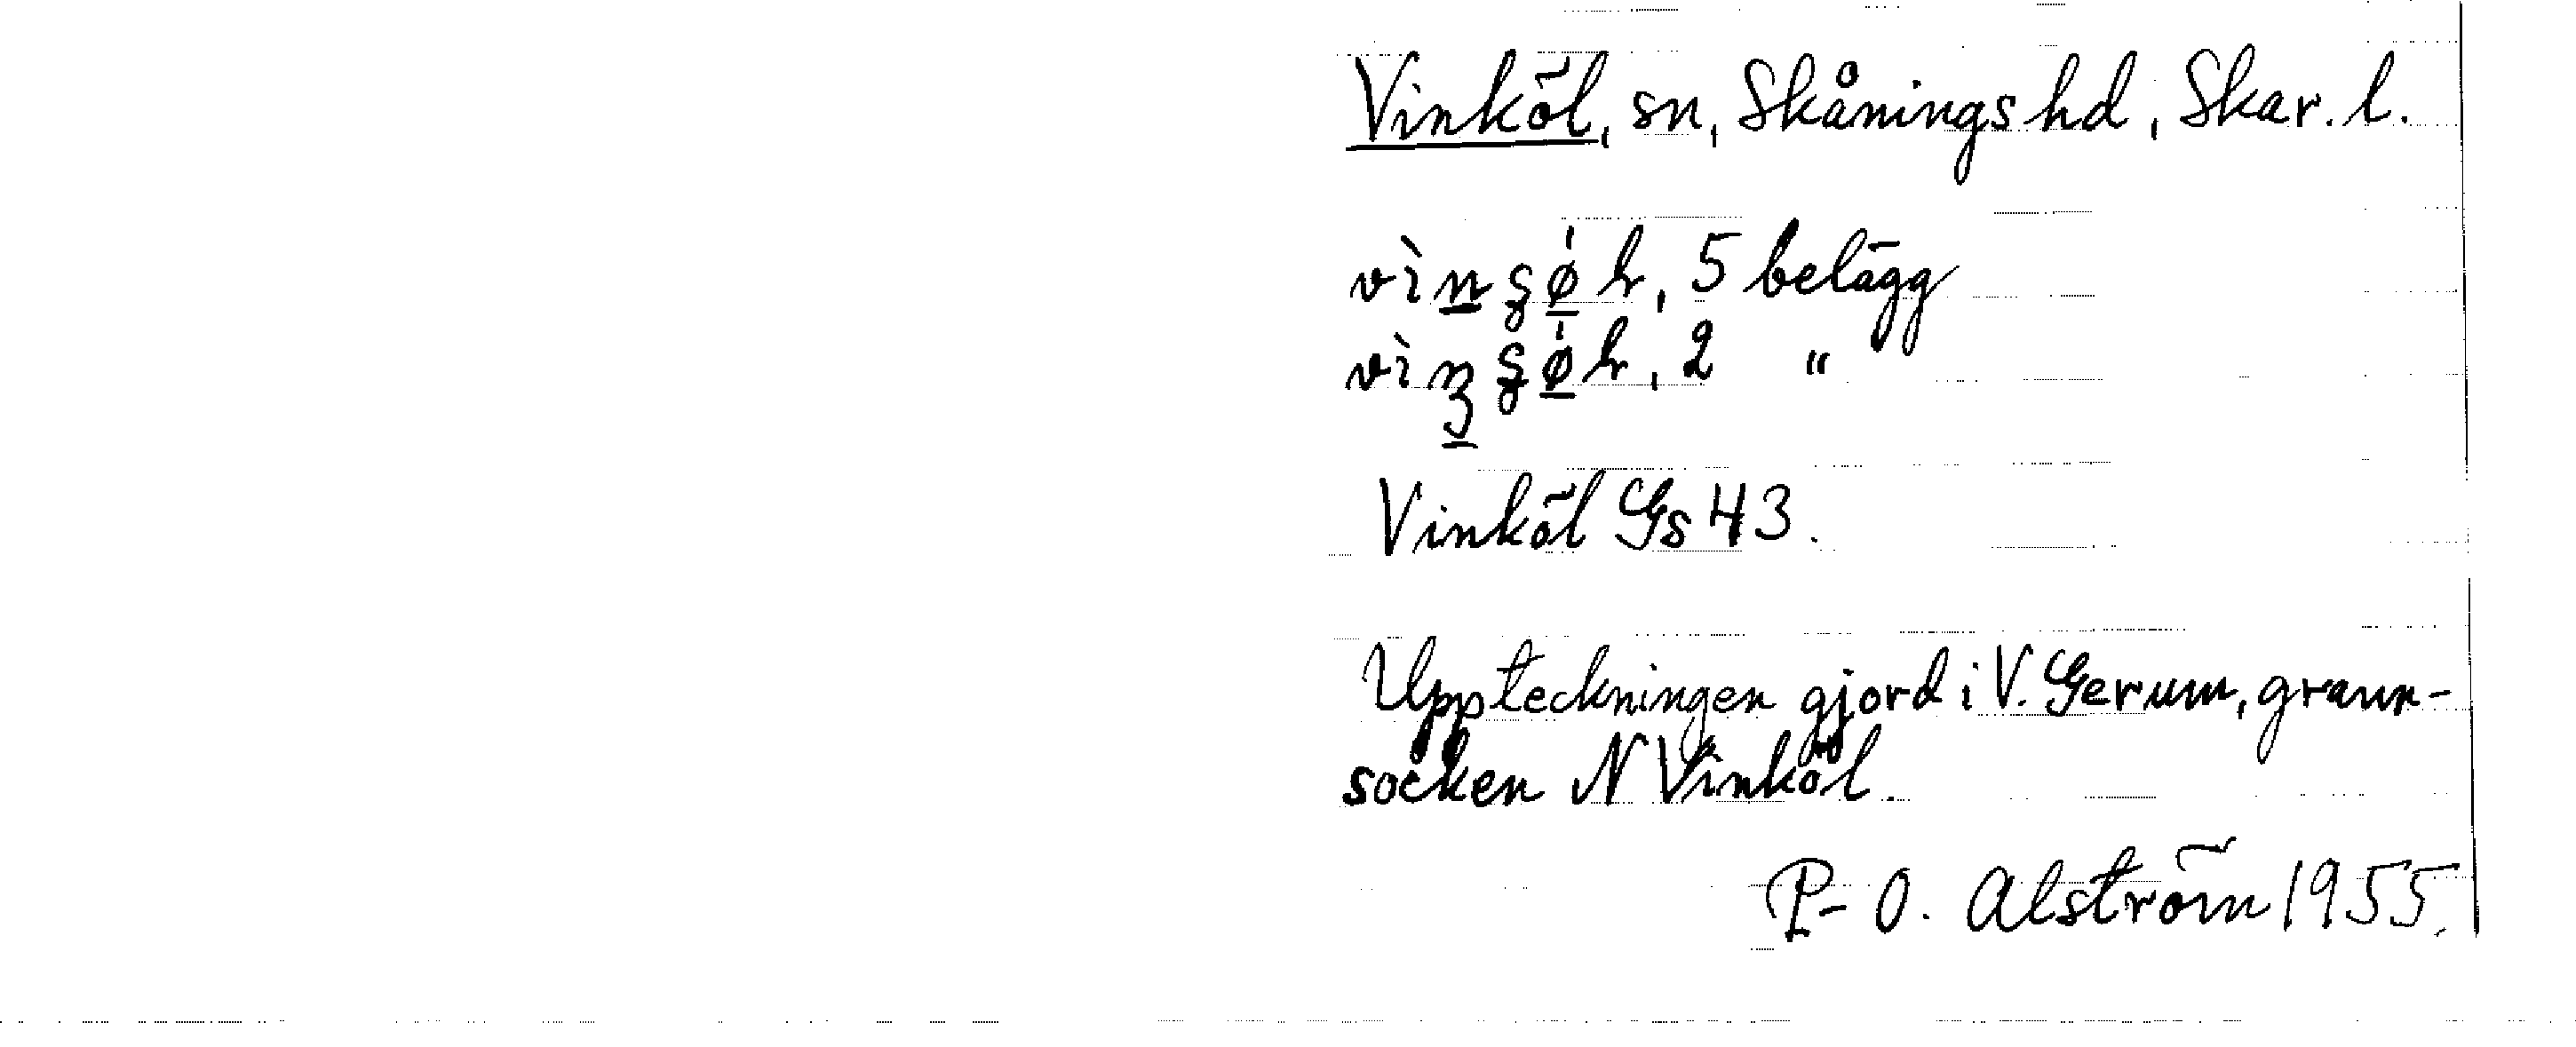 Vinköl, sn, Skånings hd, Skar. l.
5 belägg
2 "
Vinköl Gs 43.
Uppteckningen gjord i V. Gerum, gräns-
socken N Vinköl.
P-O. Alström 1955.